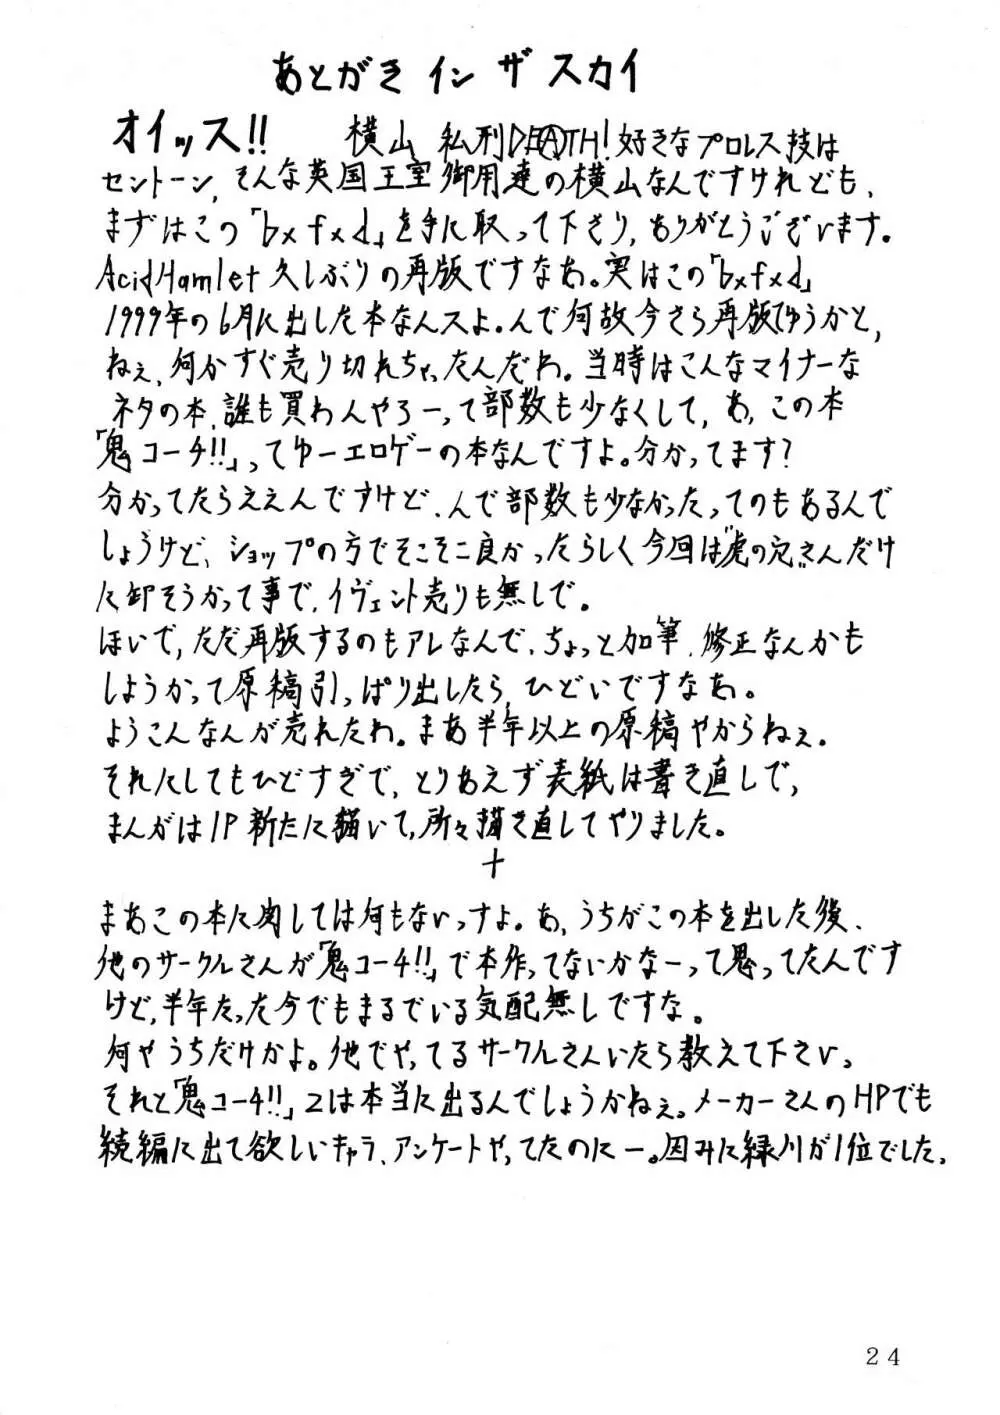 あとがき イン ザ スカイ
オイッス!! 横山 私刑DEATH!好きなプロレス技は
セントーン,そんな英国王室御用達の横山なんですけれども、
まずはこの「bxfxd」を手に取って下さり,ありがとうございます。
AcidHamlet 久しぶりの再版ですなあ。実はこの「bxfxd」
1999年の6月に出した本なんスよ。んで何故今さら再版てゆうかと,
ねぇ、何かすぐ売り切れちゃったんだわ。当時はこんなマイナーな
ネタの本、誰も買わんやろーって部数も少なくして,あ、この本
「鬼コーチ!!」ってゆーエロゲーの本なんですよ。分かってます?
分かってたらええんですけど、んで部数も少なかったってのもあるんで
しょうけど、ショップの方でそこそこ良かったらしく今回は"虎の穴"さんだけ
に卸そうかって事で、イヴェント売りも無しで。
ほいで,ただ再版するのもアレなんで、ちょっと加筆、修正なんかも
しようかって原稿引っぱり出したら,ひどいですなあ。
ようこんなんが売れたわ。まあ半年以上の原稿やからねぇ。
それにしてもひどすぎで,とりあえず表紙は書き直しで,
まんがは1P新たに描いて,所々描き直してやりました。
+
まあこの本に関しては何もないっすよ。あ,うちがこの本を出した後、
他のサークルさんが「鬼コーチ!!」で本作ってないかなーって思ってたんです
けど,半年たった今でもまるでいる気配無しですな。
何やうちだけかよ。他でやってるサークルさんいたら教えて下さい。
それと「鬼コーチ!!」2は本当に出るんでしょうかねぇ。メーカーさんのHPでも
続編に出て欲しいキャラ、アンケートやってたのにー。因みに緑川が1位でした。
24